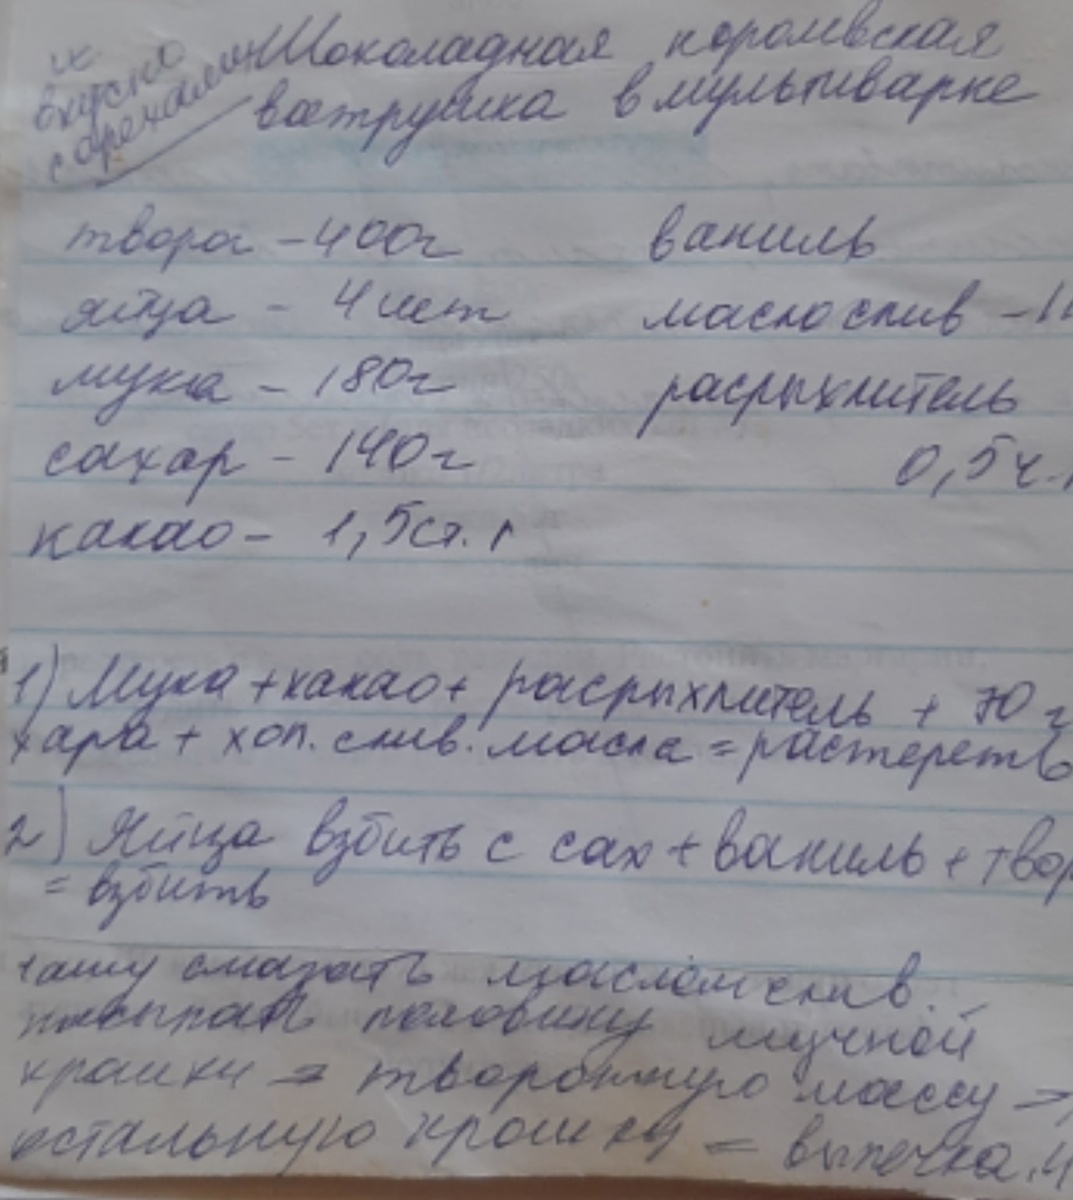 вкусно
с орехами
Шоколадная королевская
ватрушка в мультиварке
творог - 400г ваниль
яйца - 4 шт масло слив -1
мука - 180г расрыхлитель
сахар - 140г 0,5ч.
какао - 1,5ст.л
1) Мука + какао + расрыхлитель + 70 г
хара + хол. слив. масла = растереть
2) Яйца взбить с сах + ваниль + твор
= взбить
чашу смазать маслом слив.
половину мучной
крошки = творожную массу =
остальную крошку = выпечка.